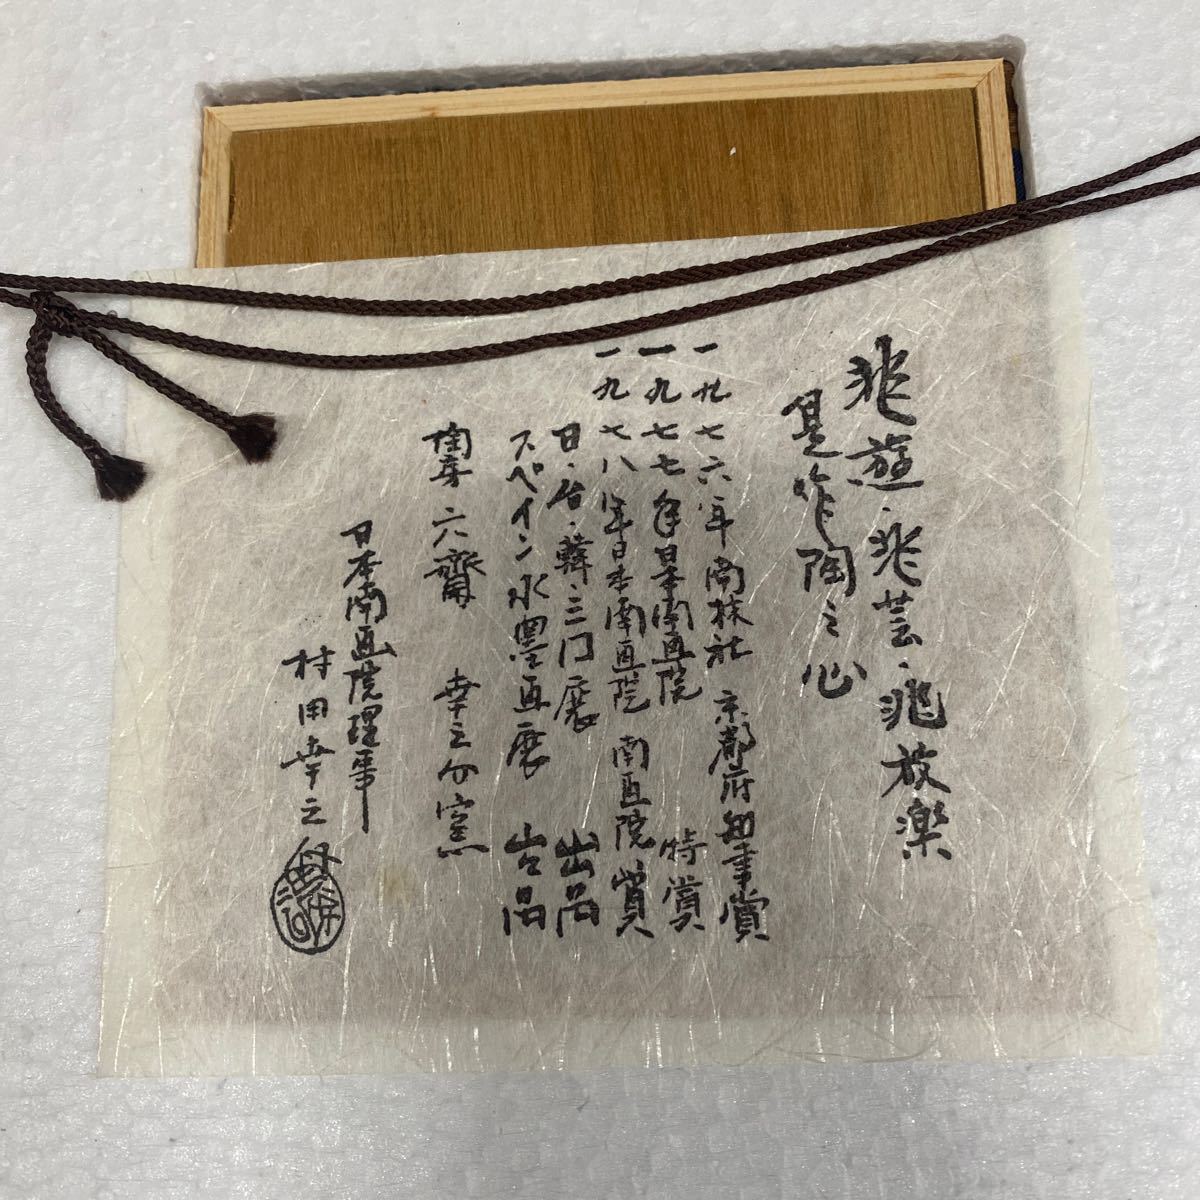 非遊・非芸・非放楽
是作陶之心
一九七六年 南林社 京都府知事賞
一九七七年日本南画院 特賞
一九七八年日本南画院 南画院賞
日・台・韓・三門展 出品
スペイン水墨画展 出品
六齋 幸之介窯
日本南画院理事
村田幸之介